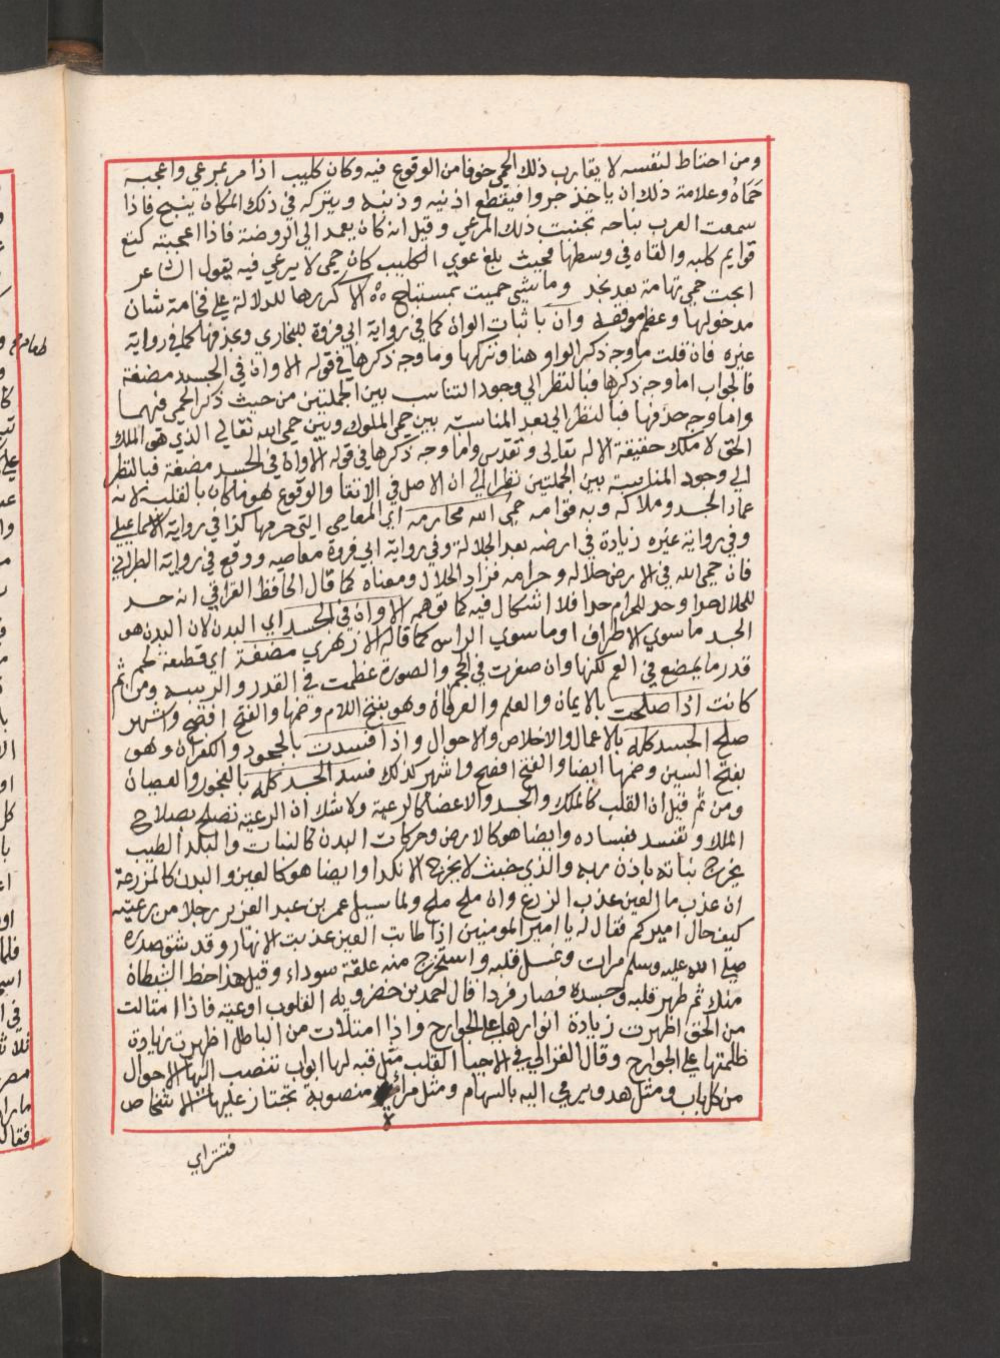 ومن احتاط لنفسه لا يقارب ذلك الحمي خوفا من الوقوع فيه وكان كليب اذا مر بمرعي واعجبه
حماه وعلامة ذلك ان ياخذ جروا فيقطع اذنيه وذنبه ويتركه في ذلك المكان ينبح فاذا
سمعت العرب نباحه تجنبت ذلك المرعي وقيل انه كان يعمد الي الروضة فاذا اعجبته كنع
قوايم كلبه والقاه في وسطها فحيث بلغ عوي الكليب كان حمي لا يرعي فيه يقول الشاعر
ابحت حمي تهامة بعد نجد وما شي حميت بمستباح الا كررها للدلالة علي فخامة شان
مدخولها وعظم موقعه وان باثبات الوان كما في رواية ابي فروة للبخاري وبحذفها كما في رواية
غيره فان قلت ما وجه ذكر الواو هنا وتركها وما وجه ذكرها في قوله الا وان في الجسد مضغة
فالجواب اما وجه ذكرها فبالنظر الي وجود التناسب بين الجملتين من حيث ذكر الحمي فيهما
واما وجه حذفها فبالنظر الي بعد المناسبة بين حمي الملوك وبين حمي الله تعالي الذي هو الملك
الحق لا ملك حقيقة الا له تعالي وتقدس واما وجه ذكرها في قوله الا وان في الجسد مضغة فبالنظر
الي وجود المناسبة بين الجملتين نظرا الي ان الاصل في الاتقا والوقوع هو ما كان بالقلب لانه
عماد الجسد وملاكه وبه قوامه حمي الله محارمه اي المعاصي التي حرمها كذا في رواية الاسماعيلي
وفي رواية غيره زيادة في ارضه بعد الجلالة وفي رواية ابي فروة معاصيه ووقع في رواية الطبراني
فان حمي الله في الارض حلاله وحرامه فزاد الحلال ومعناه كما قال الحافظ العراقي انه حد
للحلال حدا وحد للحرام حدا فلا اشكال فيه كما توهم الا وان في الجسد اي البدن لان البدن هو
الجسد ما سوي الاطراف او ما سوي الراس كما قاله الازهري مضغة اي قطعة لحم
قدر ما يمضغ في الفم لكنها وان صغرت في الحجم والصورة عظمت في القدر والرتبه ومن ثم
كانت اذا صلحت بالايمان والعلم والعرفان وهو بفتح اللام وضمها والفتح افصح واشهر
صلح الجسد كله بالاعمال والاخلاص والاحوال واذا فسدت بالجحود والكفران وهو
بفتح السين وضمها ايضا والفتح افصح واشهر كذلك فسد الجسد كله بالفجور والعصيان
ومن ثم قيل ان القلب كالملك والجسد والاعضا كالرعية ولا شك ان الرعية تصلح بصلاح
الملك وتفسد بفساده وايضا هو كالارض وحركات البدن كالنبات والبلد الطيب
يخرج نباته باذن ربه والذي خبث لا يخرج الا نكدا وايضا هو كالعين والبدن كالمزرعة
ان عذب ما العين عذب الزرع وان ملح ملح ولما سيل عمر بن عبد العزيز رجلا من رعيته
كيف حال اميركم فقال له يا امير المومنين اذا طابت العين عذبت الانهار وقد شق صدره
صلي الله عليه وسلم مرات وغسل قلبه واستخرج منه علقة سوداء وقيل هذا حظ الشيطان
منك ثم طهر قلبه وجسده فصار فردا قال احمد بن خضرويه القلوب اوعيه فاذا امتلات
من الحق اظهرت زيادة انوارها علي الجوارح واذا امتلات من الباطل اظهرت زيادة
ظلمتها علي الجوارح وقال الغزالي في الاحيا القلب مثل قبه لها ابواب تنصب اليها الاحوال
من كل باب ومثل هدف يرمي اليه بالسهام ومثل مراة منصوبة تجتاز عليها الاشخاص
فتتراي